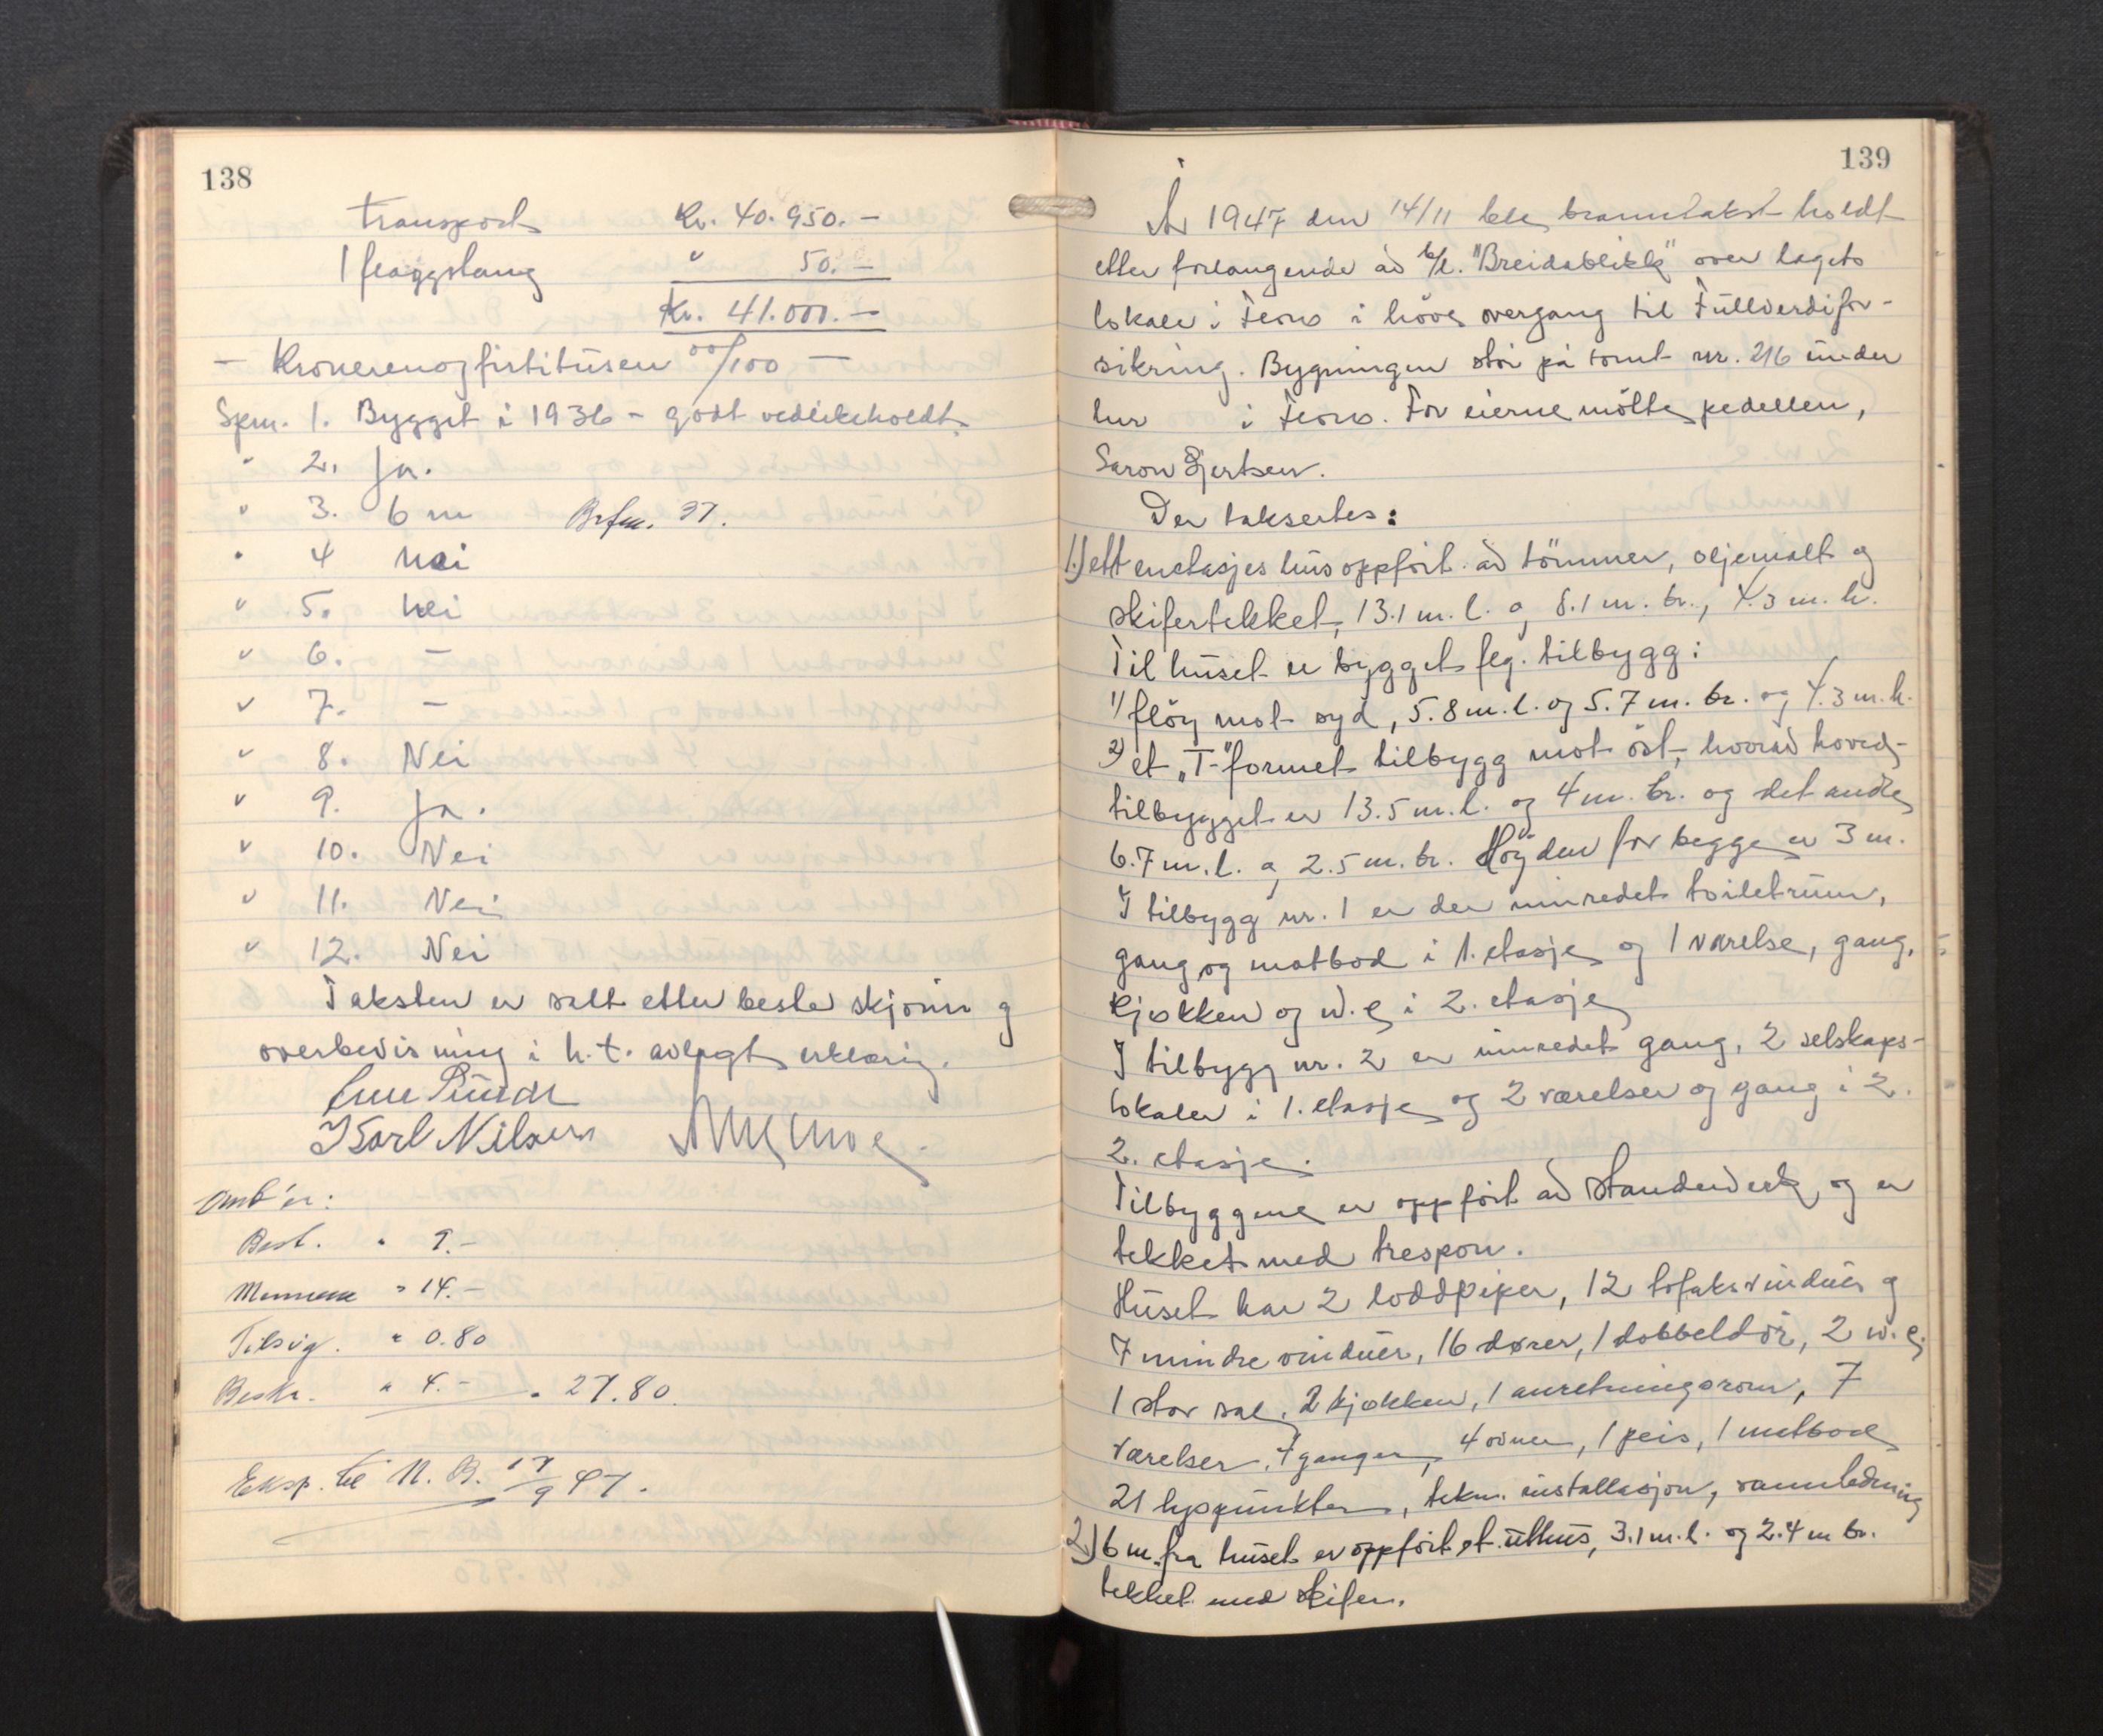 138
Transport Kr. 40.950.-
1 flaggstang " 50.-
Kr. 41.000.-
- Kronerenogfirtitusen 00/100 -
Spm. 1. Bygget i 1936 - godt vedlikeholdt.
" 2. Ja.
" 3. 6 m Brfm. 37.
" 4 Nei
" 5. Nei
" 6. -
" 7. -
" 8. Nei
" 9. Ja.
" 10. Nei
" 11. Nei
" 12. Nei
Taksten er satt etter beste skjønn og
overbevisning i h.t. avlagt erklæring.
Karl Nilsen
Omk'er:
Best. " 9.-
Mennene " 14.-
Tilsig. " 0.80
Beskr. " 4.- " 27.80
Eksp. til N.B. 17/9 47.
139
År 1947 den 14/11 ble branntakst holdt
etter forlangende av b/l. "Breidablikk" over lagets
lokale i Feons i høve overgang til Fullverdifor-
sikring. Bygningen står på tomt nr. 216 under
bnr i Feons. For eierne møtte pedellen,
Saron Gjertsen.
Der taksertes:
1.) ett enetasjes hus oppført av tømmer, oljemalt og
skifertekket, 13.1 m. l. og 8.1 m. br., 4.3 m. h.
Til huset er bygget flg. tilbygg:
1) fløy mot syd, 5.8 m. l. og 5.7 m. br. og 4.3 m. h.
2) et "T"-formet tilbygg mot øst, hvorav hoved-
tilbygget er 13.5 m. l. og 4 m. br. og det andre
6.7 m. l. og 2.5 m. br. Høyden for begge er 3 m.
I tilbygg nr. 1 er der innredet toiletrum,
gang og matbod i 1. etasje og 1 værelse, gang,
kjøkken og w.c. i 2. etasje
I tilbygg nr. 2 er innredet gang, 2 selskaps-
lokaler i 1. etasje og 2 værelser og gang i 2.
2. etasje.
Tilbyggene er oppført av standerverk, og er
tekket med trespon.
Huset har 2 loddpiper, 12 tofaksvinduer og
7 mindre vinduer, 16 dører, 1 dobbeldør, 2 w.c.
1 stor sal, 2 kjøkken, 1 anretningsrom, 7
værelser, 4 ganger, 4 ovner, 1 peis, 1 matbod
21 lyspunkter, tekn. installasjon, vannledning
2.) 6 m. fra huset er oppført et uthus, 3.1 m. l. og 2.4 m br.
tekket med skifer.